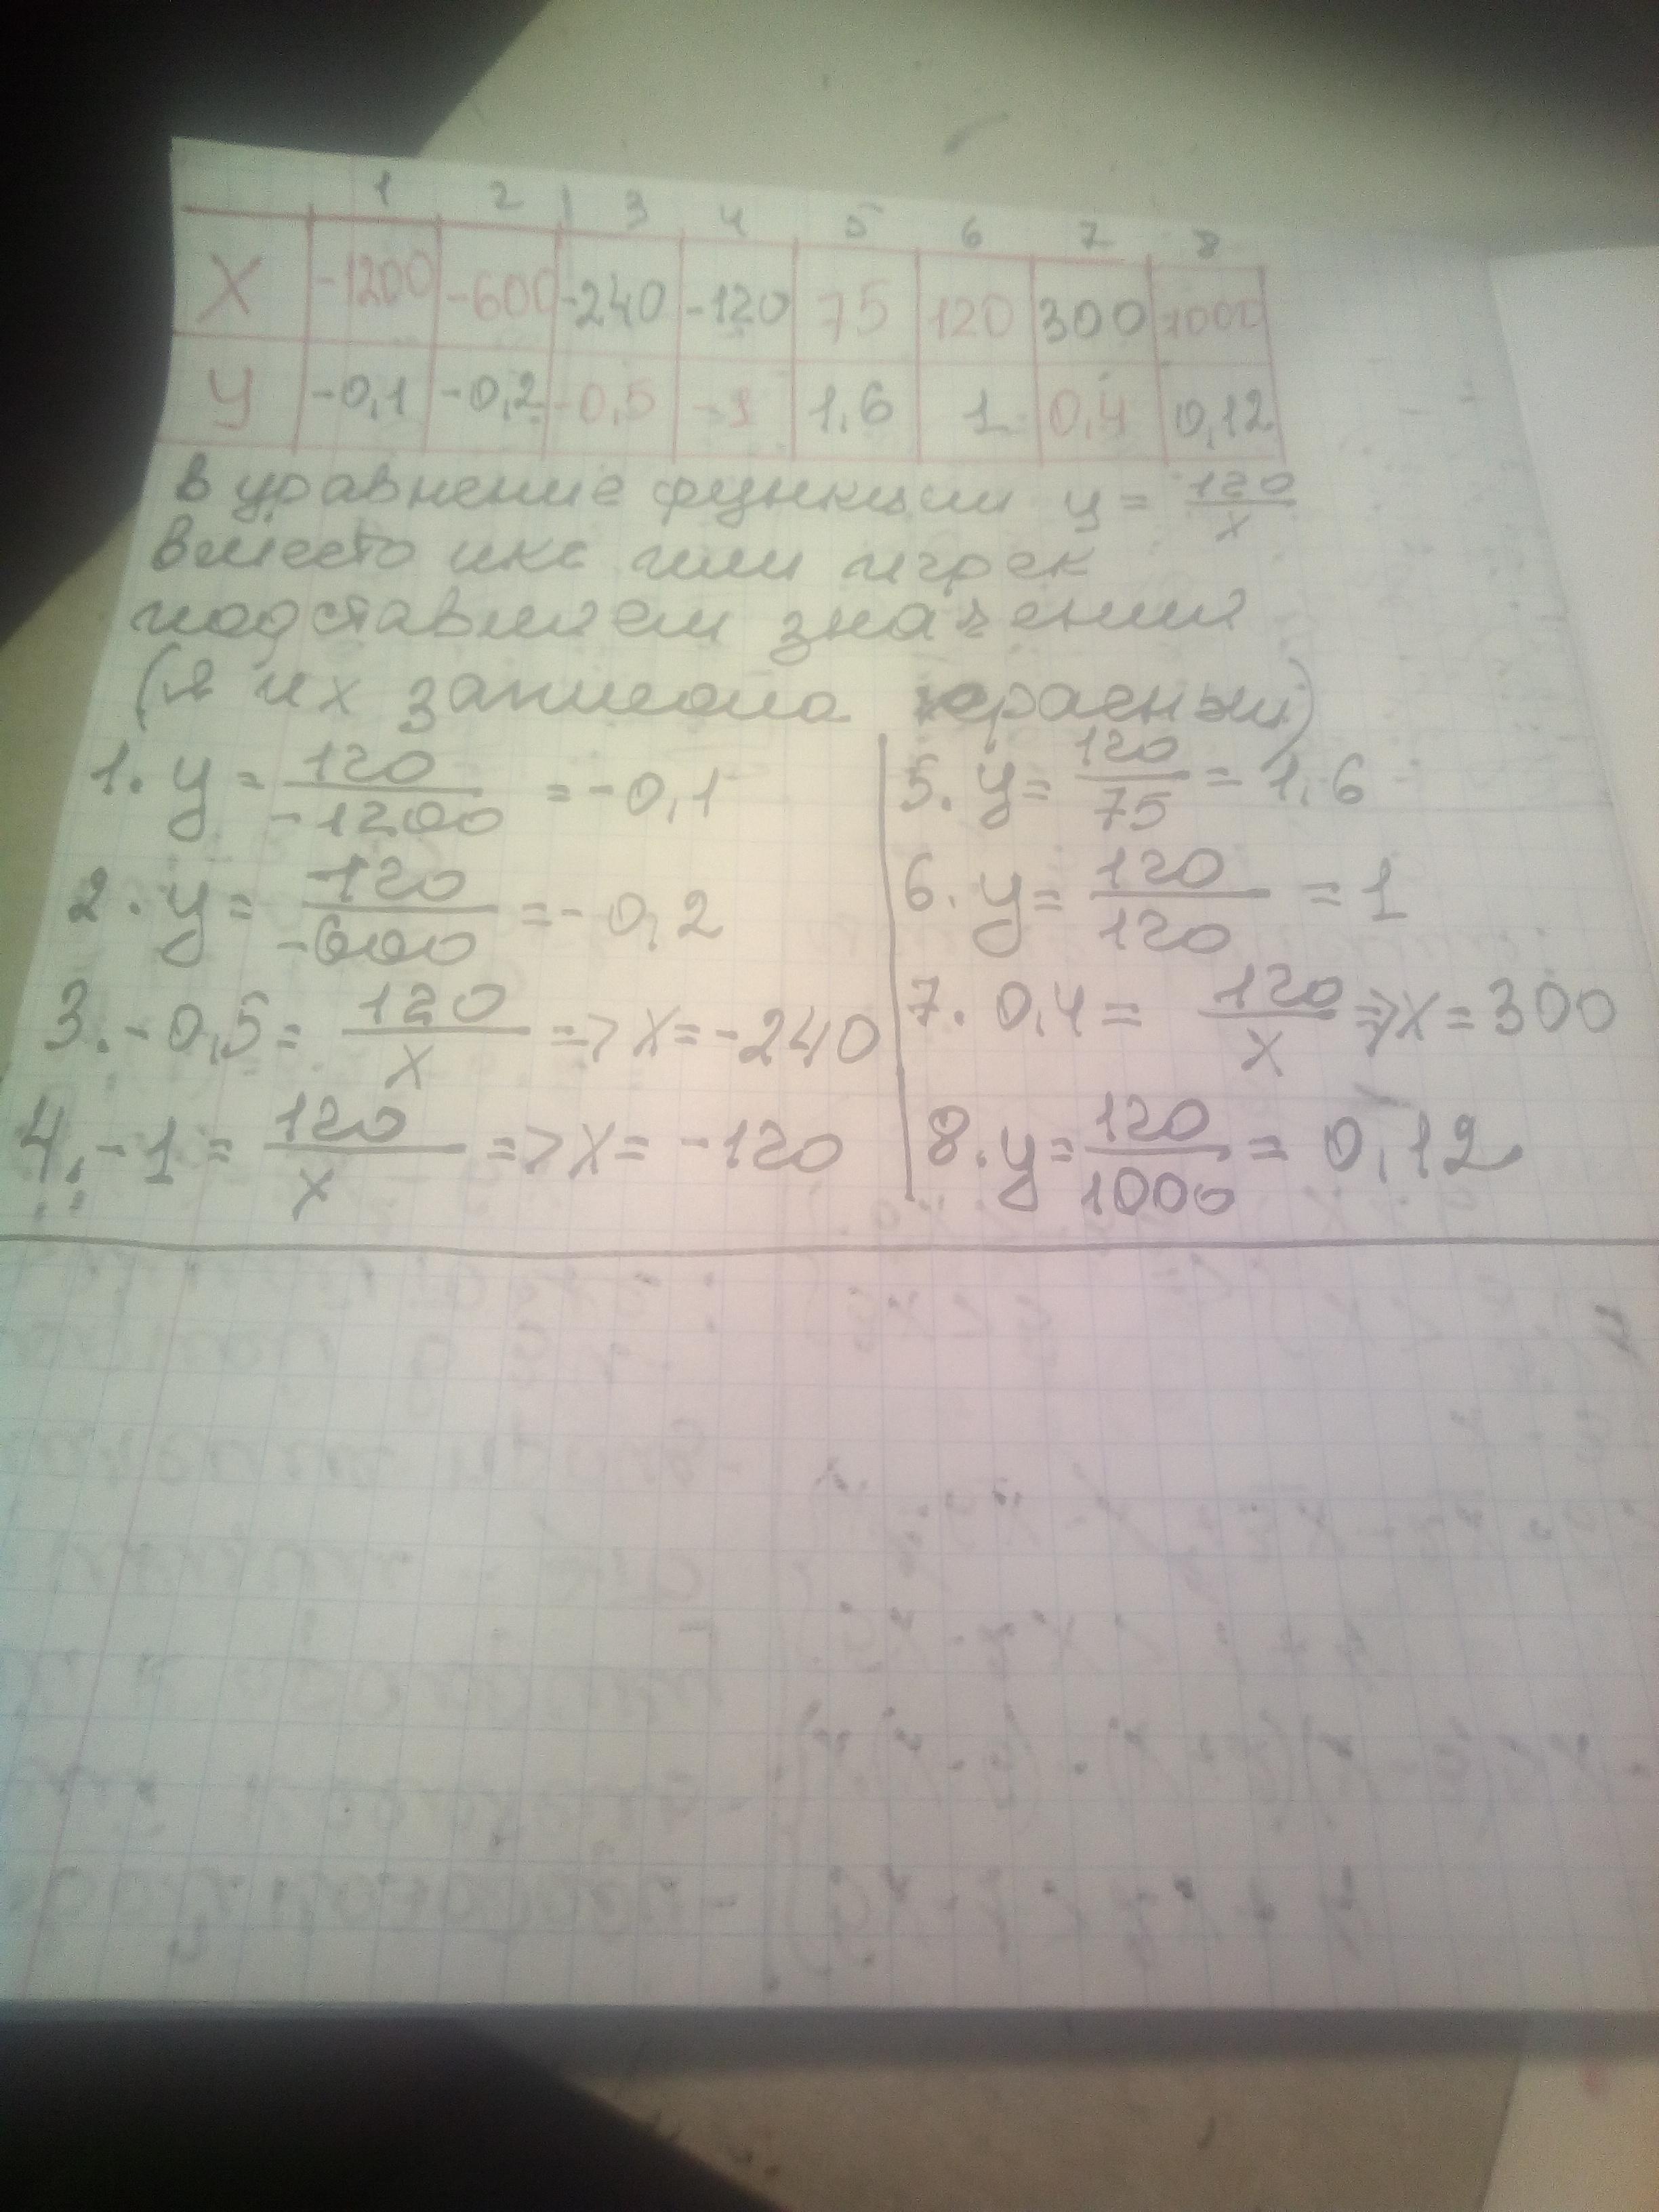 1 2 3 4 5 6 7 8
X -1200 -600 -240 -120 75 120 300 1000
y -0,1 -0,2 -0,5 -1 1,6 1 0,4 0,12
в уравнение функции y = 120/x
вместо икс или игрек
подставляем значения
(я их записала красным)
1. y = 120/-1200 = -0,1
2. y = 120/-600 = -0,2
3. -0,5 = 120/x => x = -240
4. -1 = 120/x => x = -120
5. y = 120/75 = 1,6
6. y = 120/120 = 1
7. 0,4 = 120/x => x = 300
8. y = 120/1000 = 0,12